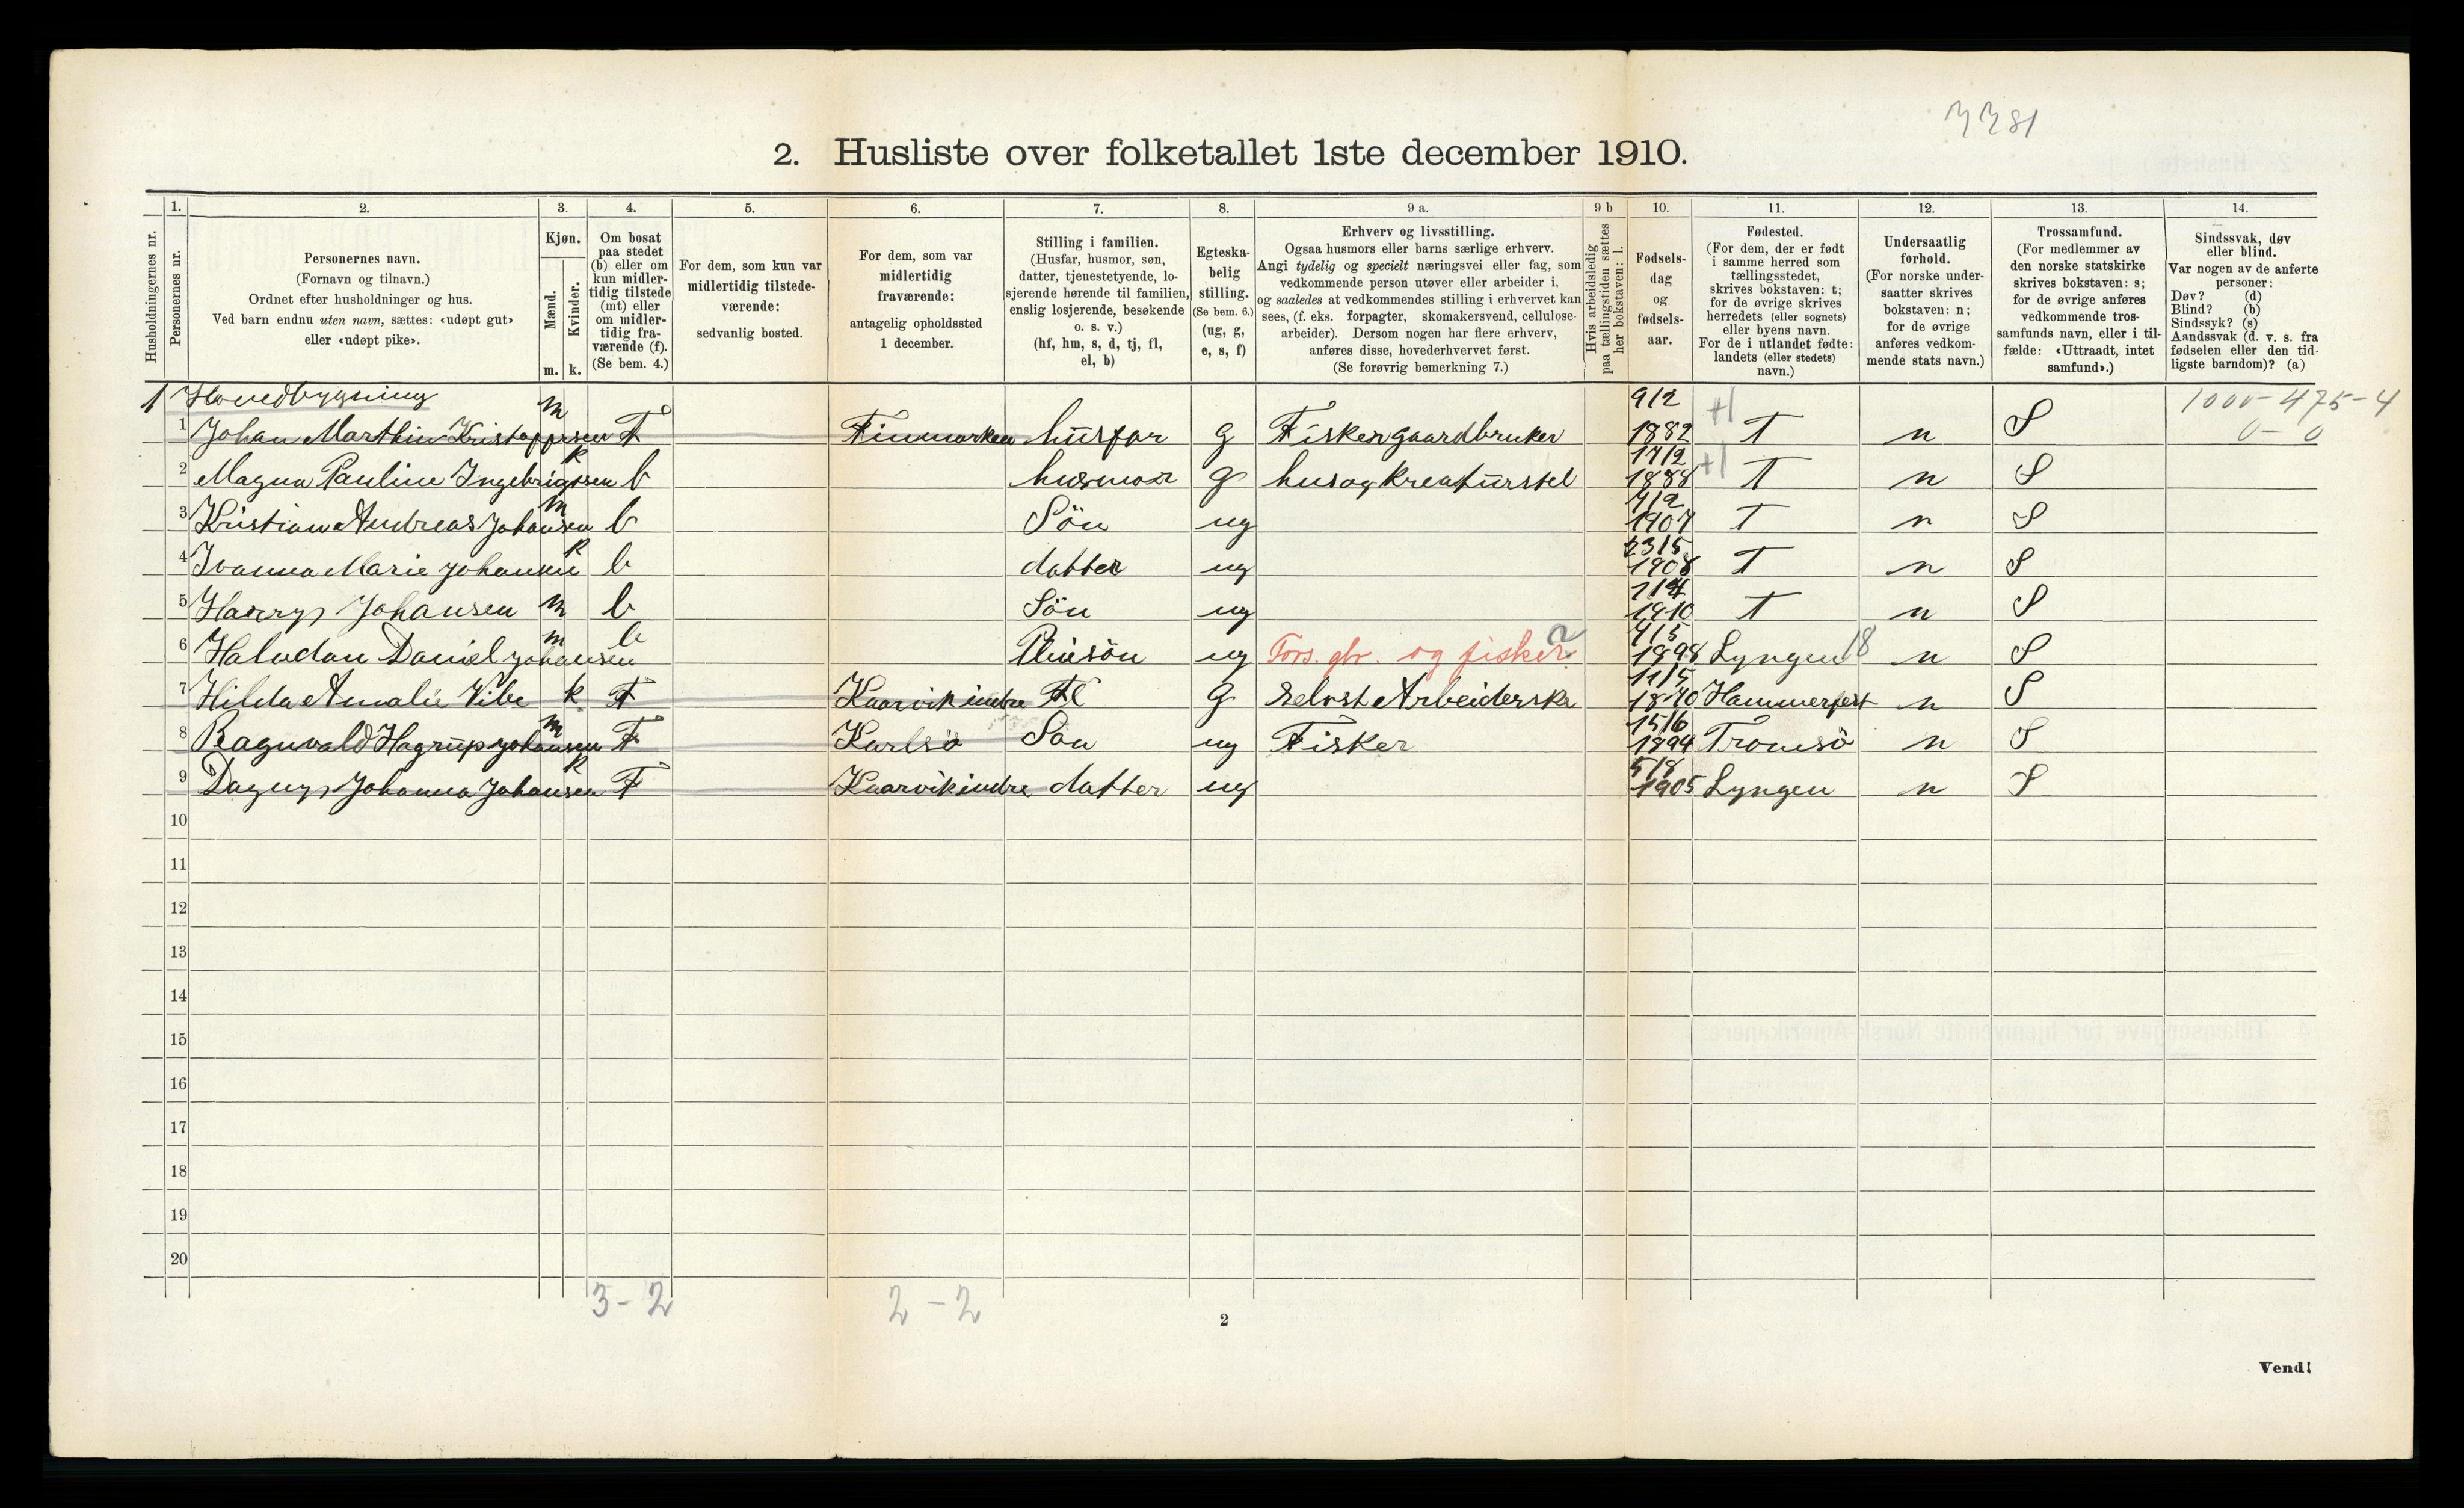 3381
2. Husliste over folketallet 1ste december 1910.
1. 2. 3. 4. 5. 6. 7. 8. 9 a. 9 b 10. 11. 12. 13. 14.
Husholdningernes nr.
Personernes nr.
Personernes navn.
(Fornavn og tilnavn.)
Ordnet efter husholdninger og hus.
Ved barn endnu uten navn, sættes: «udøpt gut»
eller «udøpt pike».
Kjøn.
Mænd.
Kvinder.
m. k.
Om bosat
paa stedet
(b) eller om
kun midler-
tidig tilstede
(mt) eller
om midler-
tidig fra-
værende (f).
(Se bem. 4.)
For dem, som kun var
midlertidig tilstede-
værende:
sedvanlig bosted.
For dem, som var
midlertidig
fraværende:
antagelig opholdssted
1 december.
Stilling i familien.
(Husfar, husmor, søn,
datter, tjenestetyende, lo-
sjerende hørende til familien,
enslig losjerende, besøkende
o. s. v.)
(hf, hm, s, d, tj, fl,
el, b)
Egteska-
belig
stilling.
(Se bem. 6.)
(ug, g,
e, s, f)
Erhverv og livsstilling.
Ogsaa husmors eller barns særlige erhverv.
Angi tydelig og specielt næringsvei eller fag, som
vedkommende person utøver eller arbeider i,
og saaledes at vedkommendes stilling i erhvervet kan
sees, (f. eks. forpagter, skomakersvend, cellulose-
arbeider). Dersom nogen har flere erhverv,
anføres disse, hovederhvervet først.
(Se forøvrig bemerkning 7.)
Hvis arbeidsledig
paa tællingstiden sættes
her bokstaven: l.
Fødsels-
dag
og
fødsels-
aar.
Fødested.
(For dem, der er født
i samme herred som
tællingsstedet,
skrives bokstaven: t;
for de øvrige skrives
herredets (eller sognets)
eller byens navn.
For de i utlandet fødte:
landets (eller stedets)
navn.)
Undersaatlig
forhold.
(For norske under-
saatter skrives
bokstaven: n;
for de øvrige
anføres vedkom-
mende stats navn.)
Trossamfund.
(For medlemmer av
den norske statskirke
skrives bokstaven: s;
for de øvrige anføres
vedkommende tros-
samfunds navn, eller i til-
fælde: «Uttraadt, intet
samfund».)
Sindssvak, døv
eller blind.
Var nogen av de anførte
personer:
Døv? (d)
Blind? (b)
Sindssyk? (s)
Aandssvak (d. v. s. fra
fødselen eller den tid-
ligste barndom)? (a)
1 Hovedbygning m 9/2 +1 1000-475-4
1 Johan Marthin Kristoffersen F Finmarken husfar g Fisker gaardbruker 1882 T n S 0-0
k 17/2 +1
2 Magna Pauline Ingebrigtsen b husmor g hus og kreaturstel 1888 T n S
m 7/2
3 Kristian Andreas Johansen b Sön ug 1907 T n S
k 23/5
4 Ivanna Marie Johansen b datter ug 1908 T n S
5 Harry Johansen m b Sön ug 1910 T n S
m b 7/5
6 Halvdan Daniel Johansen Pleiesön ug Fors. gbr. og fisker 2 1898 Lyngen 18 n S
11/5
7 Hilda Amalie Vibe k F Kaarvik indre Fl g selvst Arbeiderske 1870 Hammerfest n S
m 15/6
8 Ragnvald Hagrup Johansen F Karlsö Sön ug Fisker 1894 Tromsö n S
k 5/8
9 Dagny Johanna Johansen F Kaarvik indre datter ug 1905 Lyngen n S
10
11
12
13
14
15
16
17
18
19
20
3-2 2-2
2
Vend!